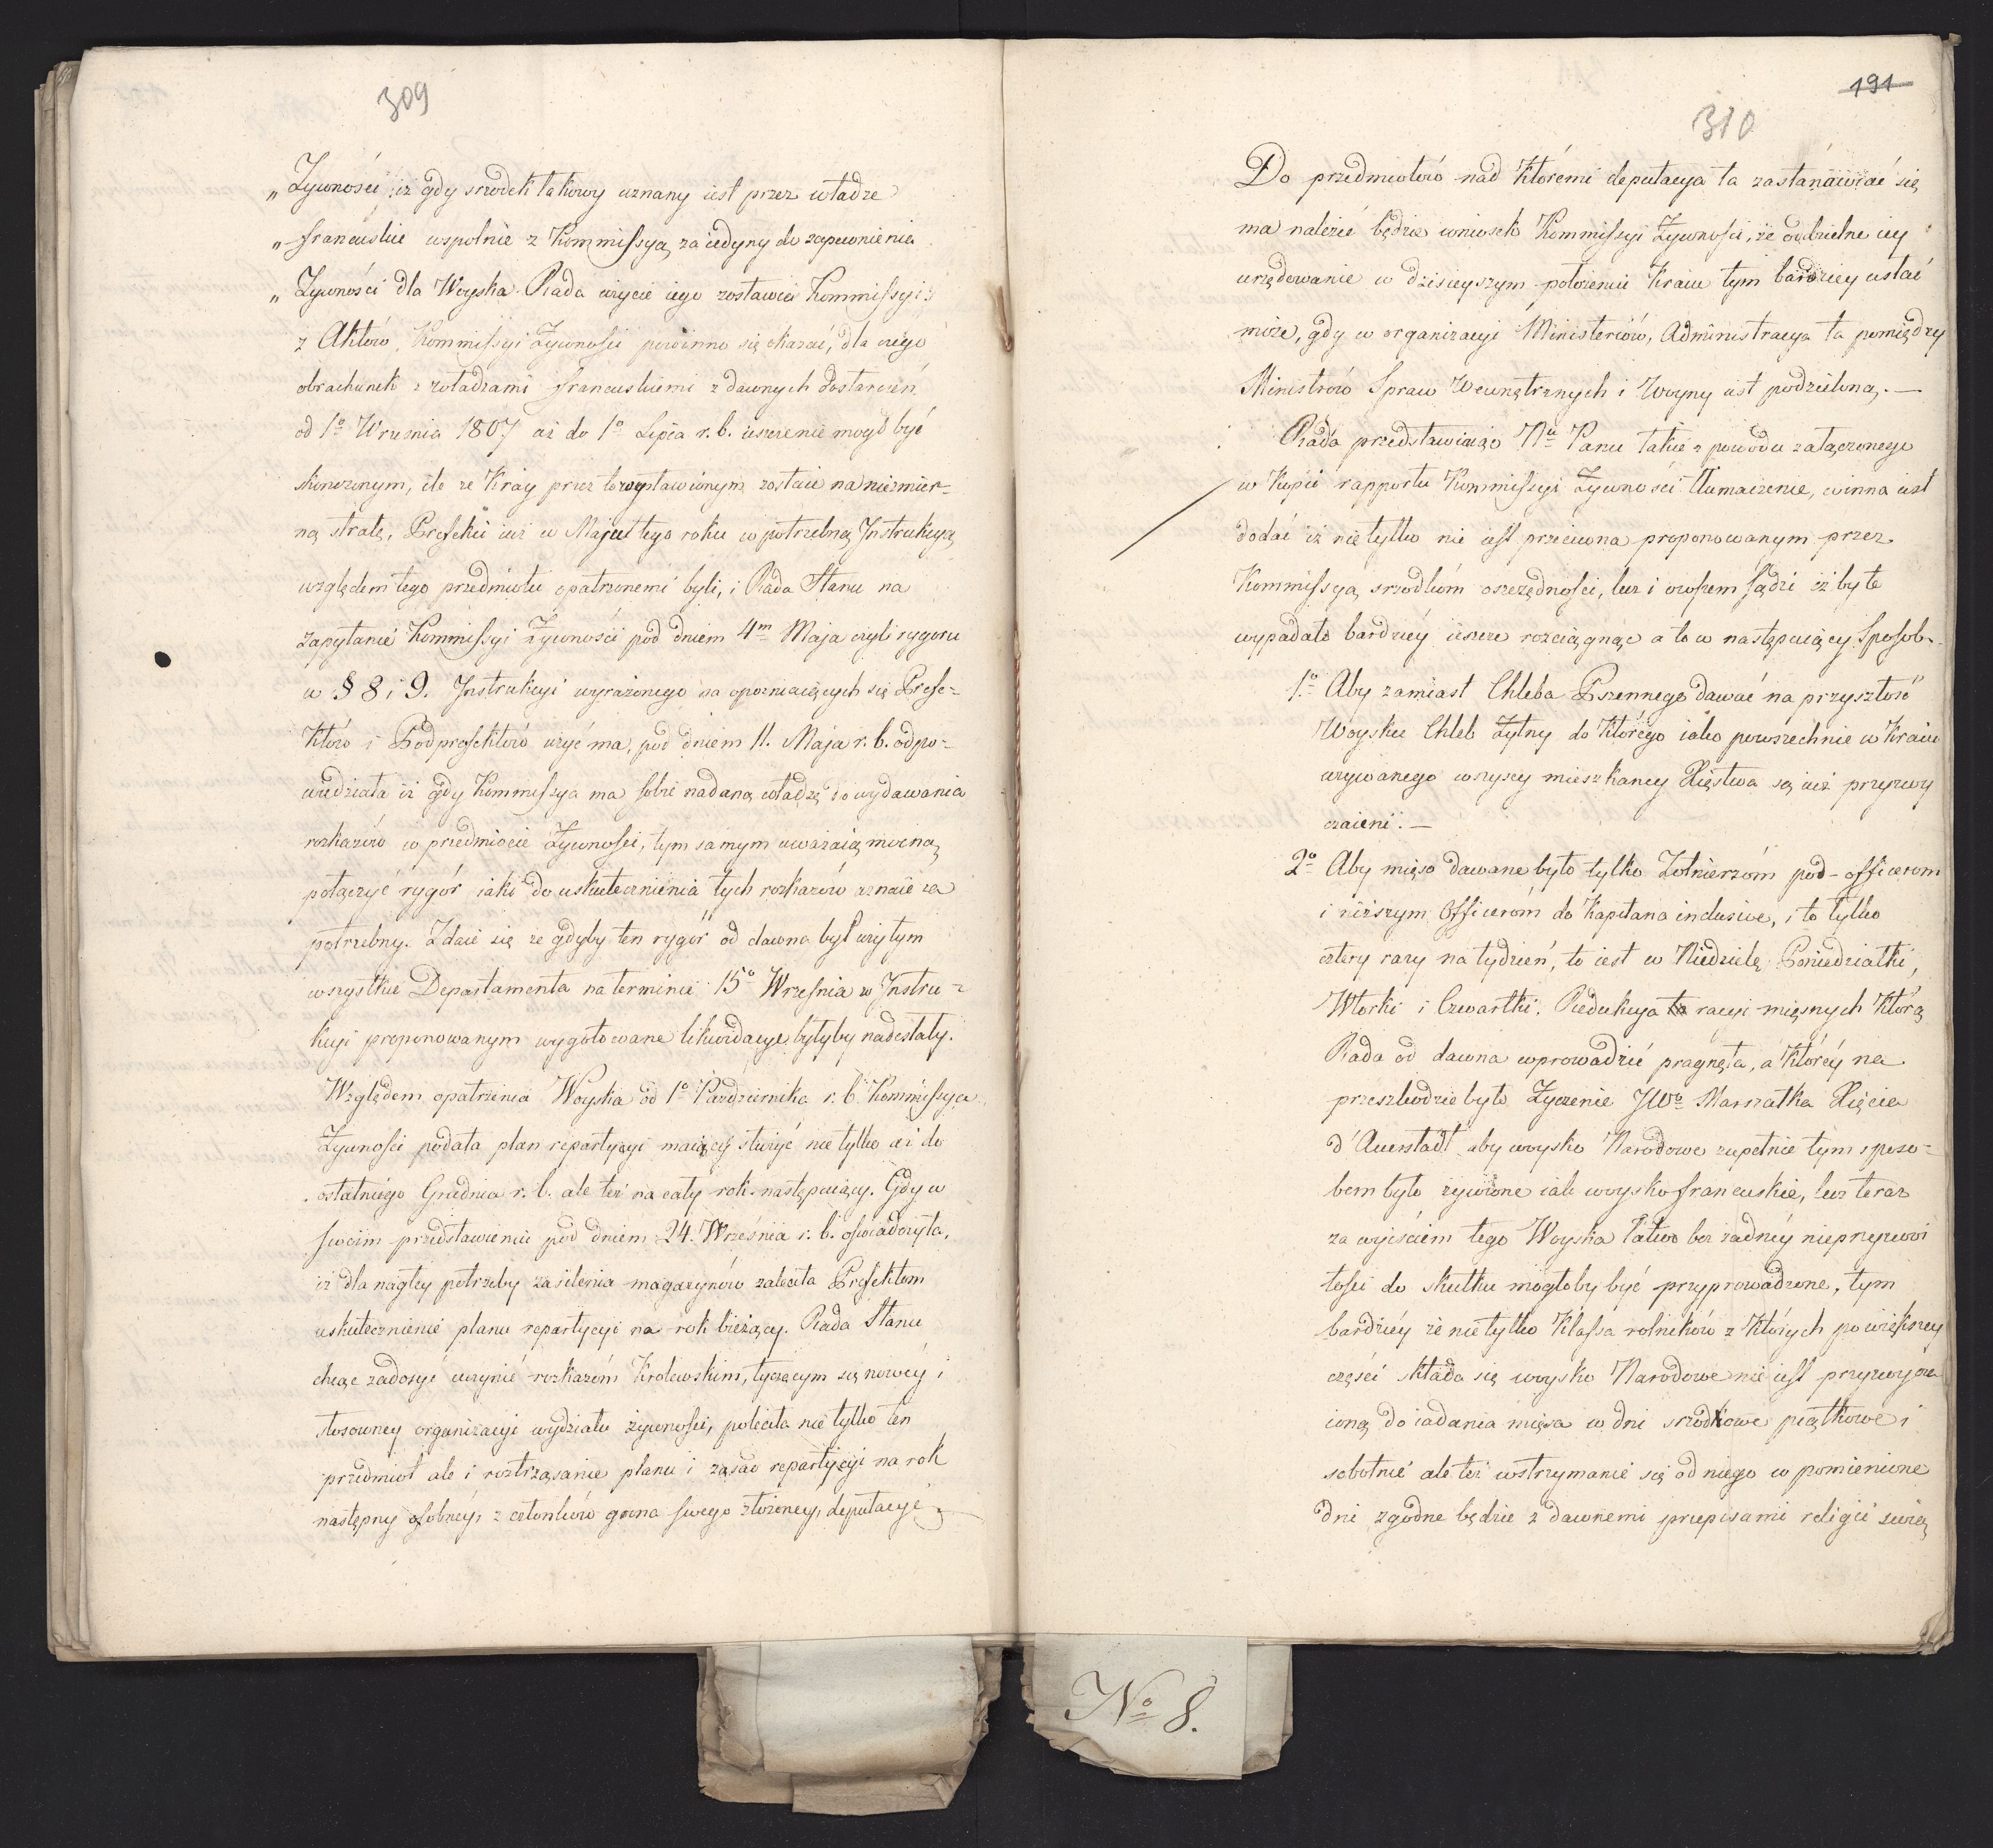 309
„ Zywności iż gdy srzodek takowy uznany iest przez władze
„ francuskie wspolnie z Kommissyą za iedyny do zapewnienia
„ Zywności dla Woyska Rada użycie iego zostawia Kommissyi:
z Aktów Kommissyi Zywności powinno się okazać, dla czego
obrachunek z władzami francuskiemi z dawnych dostarczeń
od 1º Wrzesnia 1807 aż do 1º Lipca r. b. ieszcze nie mógł być
skończonym, ile ze Kray przez to wystawionym zostaie na niezmier=
ną stratę, Prefekci iuż w Maju tego roku w potrzebną Instrukcyą
względem tego przedmiotu opatrzonemi byli, i Rada Stanu na
zapytanie Kommissyi Zywności pod dniem 4m Maja czyli rygoru
w § 8 i 9. Instrukcyi wyrażonego na opozniaiących się Prefe=
któw i Podprefektów użyć ma, pod dniem 11. Maja r. b. odpo=
wiedziała iż gdy Kommissya ma sobie nadaną władzę do wydawania
rozkazów w przedmiocie Zywności, tym samym uważaią można
połączyć rygór iaki do uskutecznienia tych rozkazów uznaie za
potrzebny. Zdaie się ze gdyby ten rygór od dawna był użytym
wszystkie Departamenta na terminie 15º Września w Instru=
kcyi proponowanym wygotowane likwidacye byłyby nadesłały.
Względem opatrzenia Woyska od 1º Pazdziernika r. b. Kommissya
Zywności podała plan repartycyi maiący służyć nie tylko aż do
ostatniego Grudnia r. b. ale też na cały rok następuiący. Gdy w
swoim przedstawieniu pod dniem 24. Września r. b. oświadczyła,
iż dla nagłey potrzeby zasilenia magazynów zaleciła Prefektom
uskutecznienie planu repartycyi na rok bieżący. Rada Stanu
chcąc zadosyć uczynić rozkazóm Krolewskim, tyczącym się nowéy i
stosowney organizacyi wydziału żywności, poleciła nie tylko ten
przedmiot ale i roztrząsanie planu i zasad repartycyi na rok
następny osobnéy, z członków grona swego złożoney, deputacyi
191
310
Do przedmiotów nad któremi deputacya ta zastanawiać się
ma należeć będzie wniosek Kommissyi Zywności, że oddzielne iey
urzędowanie w dzisieyszym położeniu Kraiu tym bardziey ustać
może, gdy w organizacyi Ministeriów, Administracya ta pomiędzy
Ministrów Spraw Wewnętrznych i Woyny iest podzieloną. —
Rada przedstawiaiąc Nu Panu takie z powodu załączonego
w Kopii rapportu Kommissyi Zywności tłumaczenie, winna iest
dodać iż nie tylko nie iest przeciwna proponowanym przez
Kommissyą srzodkóm oszczędności, lecz i owszem sądzi iż by te
wypadało bardziéy ieszcze rozciągnąć a to w następuiący Sposob.
1.º Aby zamiast Chleba Pszennego dawać na przyszłość
Woysku Chleb Zytny do którego iako powszechnie w Kraiu
używanego wszyscy mieszkańcy Xięstwa są iuż przyzwy
czaieni. —
2º Aby mięso dawane było tylko Zołnierzóm pod-officerom
i niższym Officeróm do Kapitana inclusive, i to tylko
cztery razy na tydzień, to iest w Niedzielę Poniedziałki,
Wtorki i Czwartki. Redukcya ta racyi mięsnych którą
Rada od dawna wprowadzić pragnęła, a któréy na
przeszkodzie było Zyczenie JWo Marszałka Xięcia
d'Auerstädt aby woysko Narodowe zupełnie tym sposo=
bem było żywione iak woysko francuskie, lecz teraz
za wyiściem tego Woyska łatwo bez żadnéy nieprzyzwoi
tości do skutku mogłoby być przyprowadzone, tym
bardziéy ze nie tylko Klassa rolników z których po większey
części składa się woysko Narodowe nie iest przyzwycza
ioną do iadania mięsa w dni srzodkowe piątkowe i
sobotnie ale też wstrzymanie się od niego w pomienione
dni zgodne będzie z dawnemi przepisami religii świę
Nº 8.